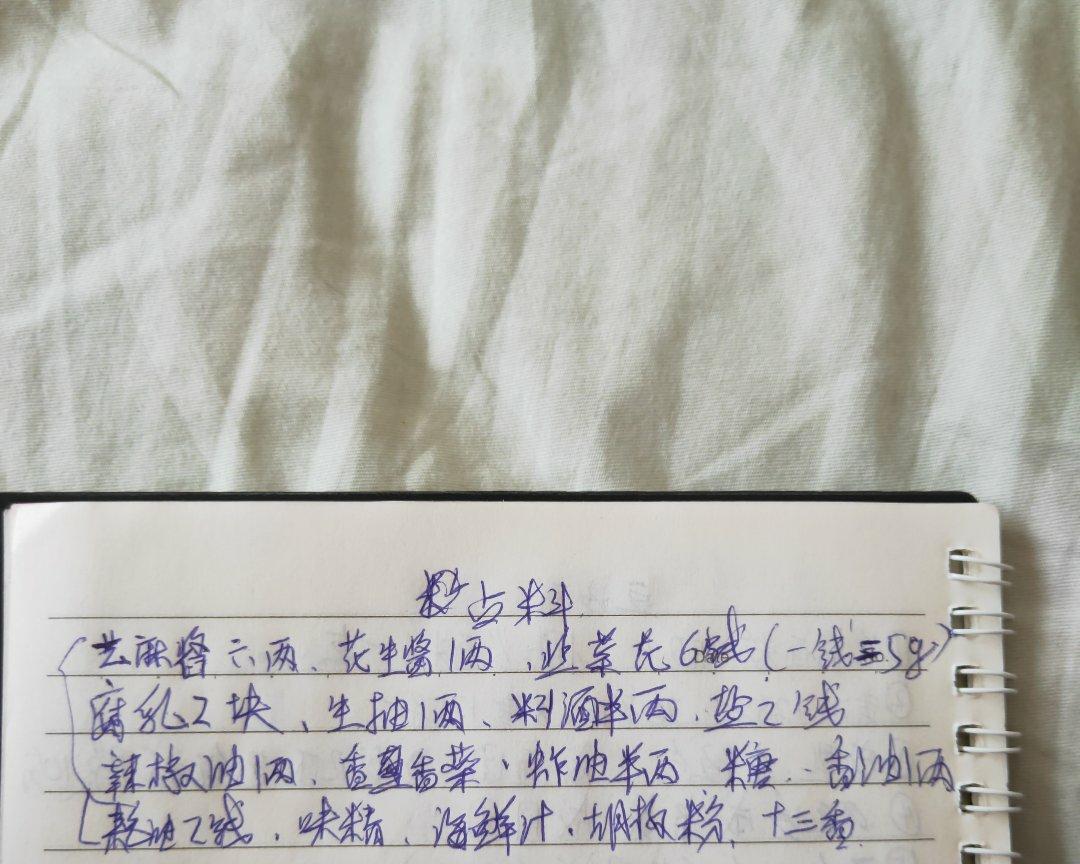 点料
芝麻酱六两、花生酱1两、韭菜花6钱(一钱=5g)
腐乳2块、生抽1两、料酒半两、盐2钱
辣椒油1两、香葱香菜、炸油半两 糖、香油1两
耗油2钱、味精、海鲜汁、胡椒粉、十三香